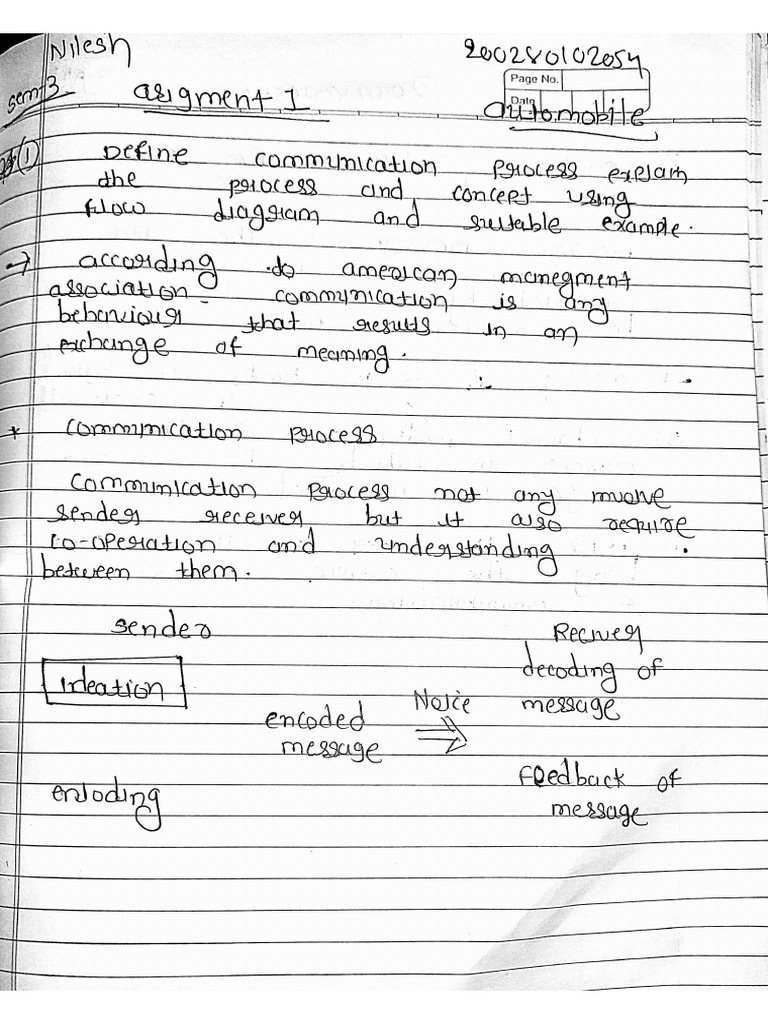 Nilesh
200280102054
sem-3
Page No.
asigment 1
Date
automobile
(1) Define communication process explain
the process and concept using
flow diagram and suitable example.
→ according to american manegment
association communication is any
behaviour that results in an
exchange of meaning.
* communication process
communication process not any involve
sender receiver but it also require
co-operation and understanding
between them.
sender
Reciver
Ideation
decoding of
message
encoded
message
Noice
⇒
encoding
feedback of
message